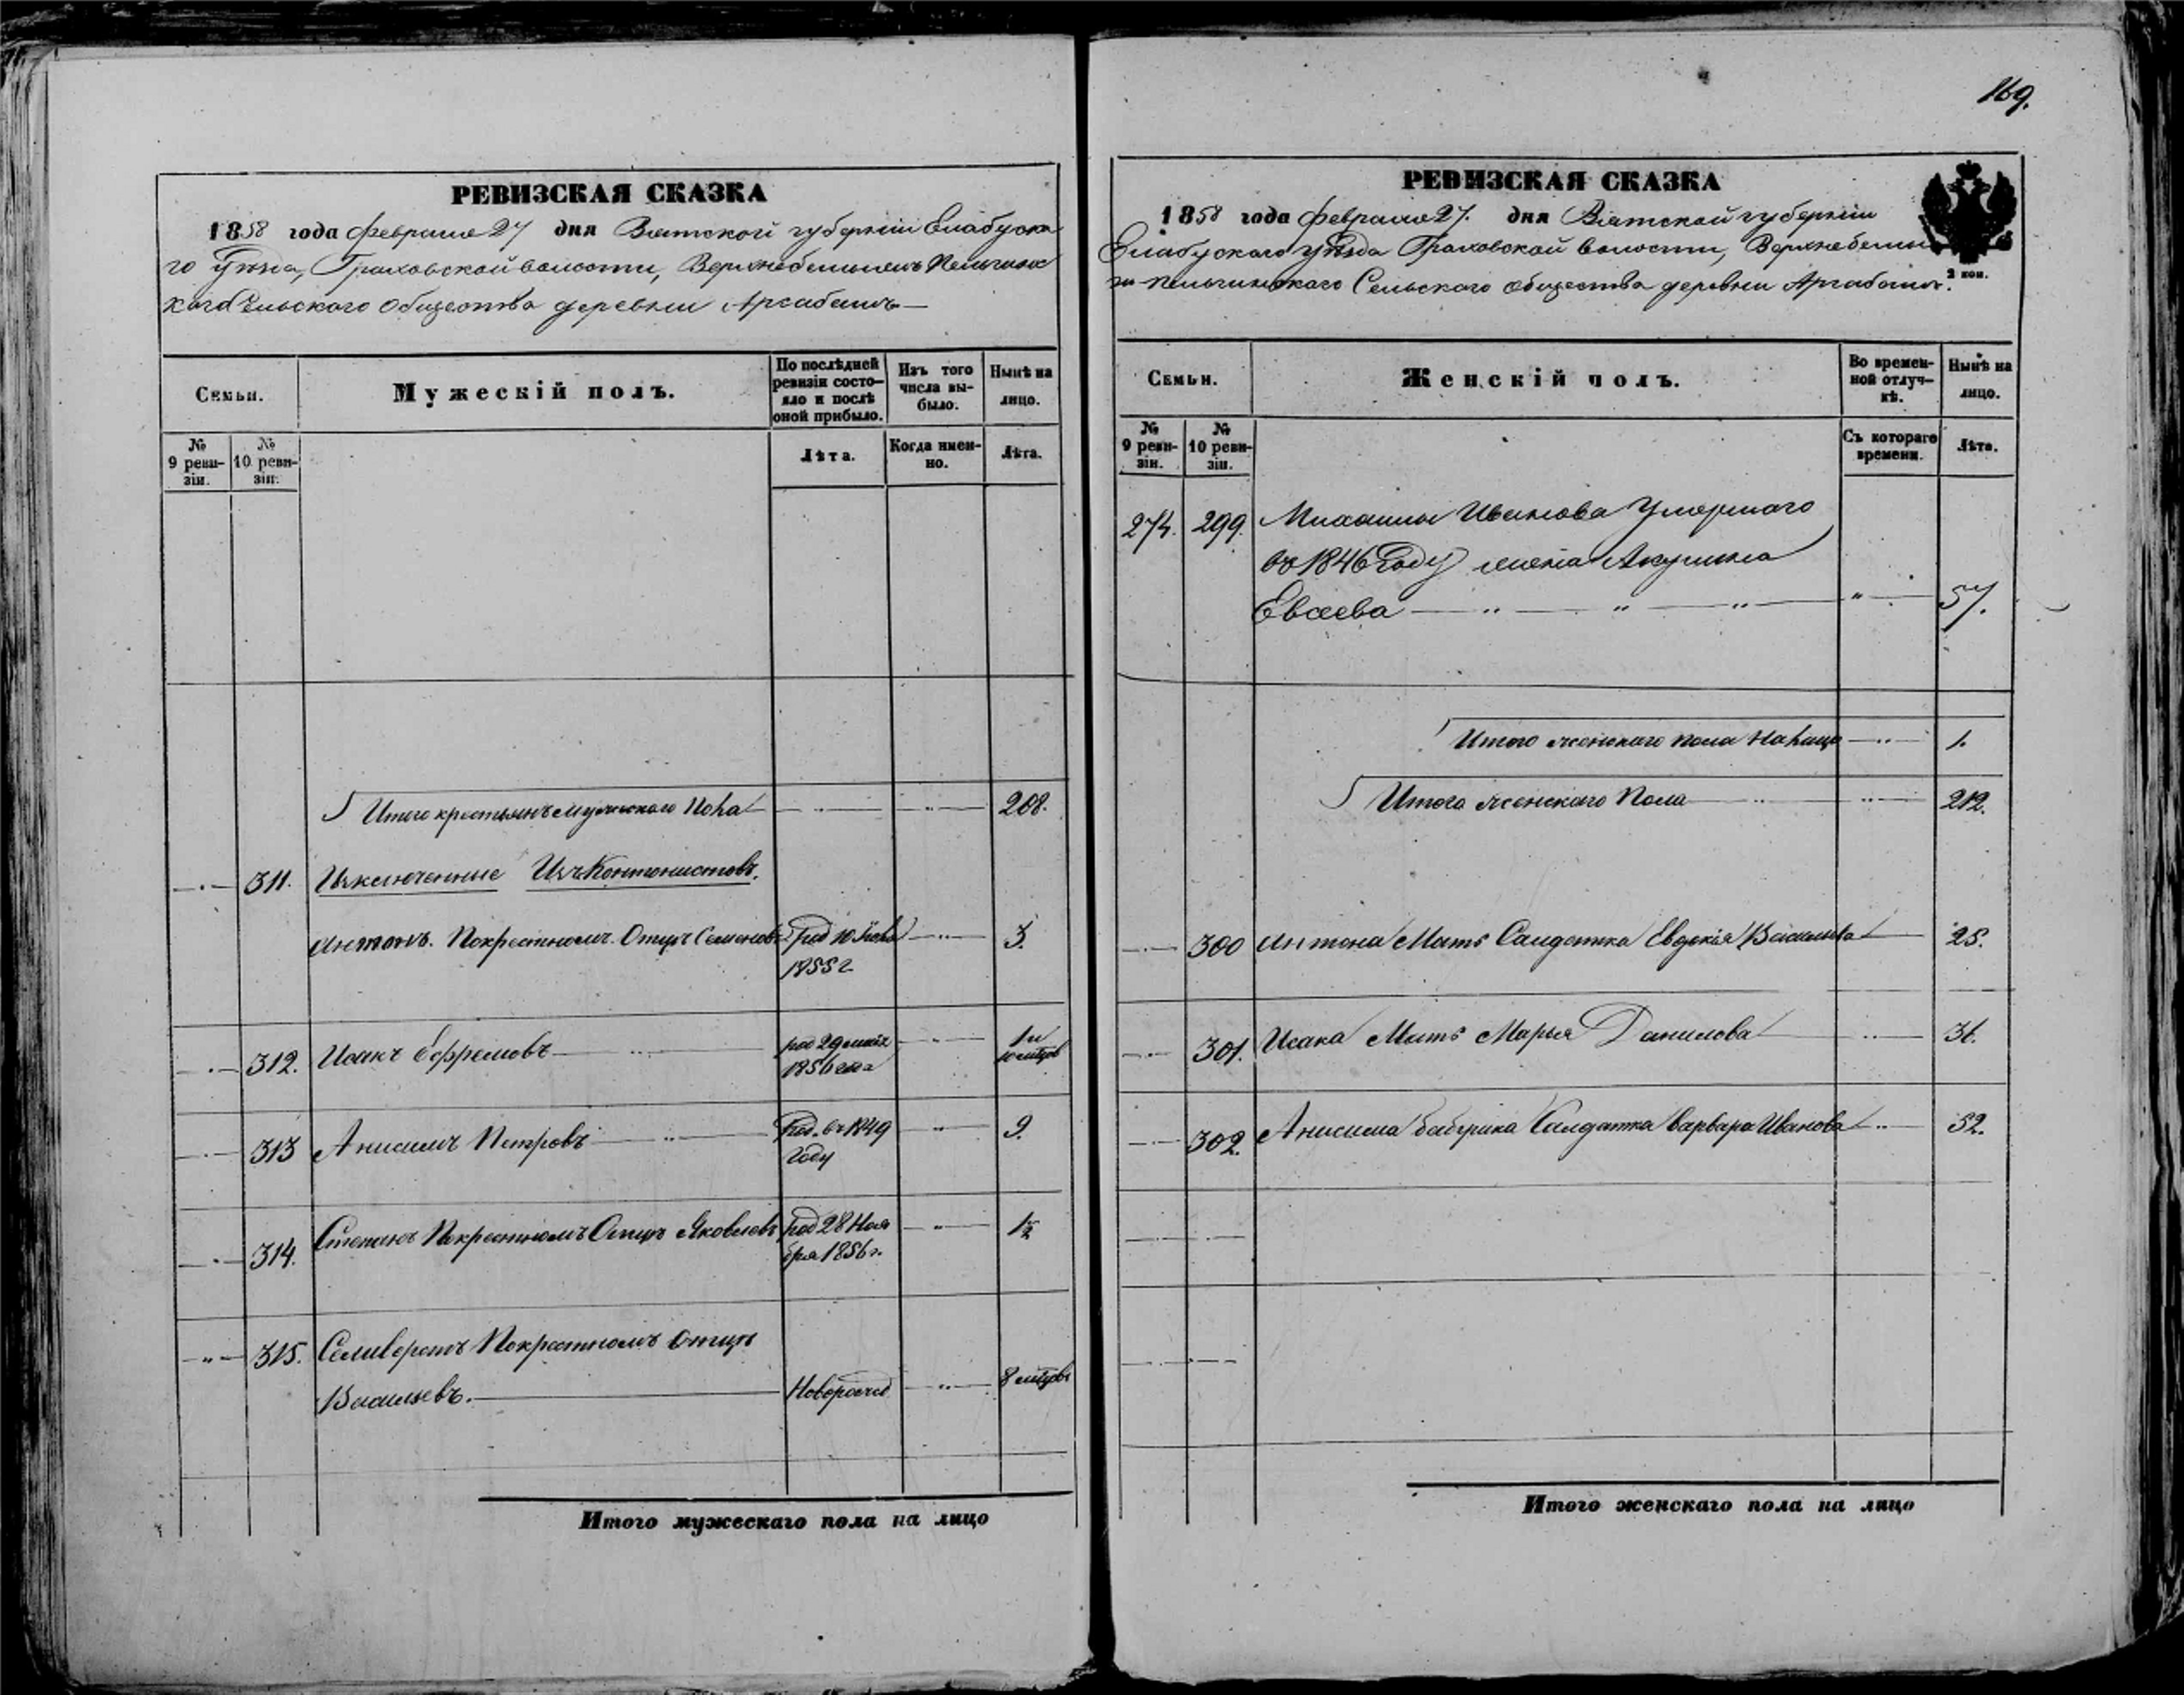 169.
РЕВИЗСКАЯ СКАЗКА
1858 года февраля 27 дня Вятской губерніи Елабуска
го Уѣзда, Граховской волости, Верхнебемыжъ Пельгинс
каго Сельского общества деревни Арсабашъ
Семьи.
Мужескій полъ.
По послѣдней ревизіи состо-
яло и послѣ оной прибыло.
Изъ того числа вы-
было.
Нынѣ на лицо.
№ 9 реви-
зіи.
№ 10 реви-
зіи.
Лѣта.
Когда имен-
но.
Лѣта.
Итого крестьянъ мужескаго Пола 208.
311. Изключенные Изъ Кантонистовъ.
Антонъ. Покрестномъ Отцѣ Семеновъ Род 10 1855 г 3.
312. Исакъ Ефремовъ род 29 1856 года 1 и 10 мѣсяцов
313 Анисимъ Петровъ Род. въ 1849 году 9.
314. Степанъ Покрестномъ Отцѣ Яковлевъ род 28 Ноя
бря 1856 г. 1½
315. Селиверстъ Покрестномъ Отцѣ
Васильевъ. Новорожд 8 мѣсяцовъ
Итого мужескаго пола на лицо
РЕВИЗСКАЯ СКАЗКА
1858 года февраля 27. дня Вятской губерніи
Елабускаго уѣзда Граховской волости, Верхнебемы
жъ-пельгинскаго Сельского общества деревни Арсабашъ.
2 коп.
Семьи.
Женскій полъ.
Во времен-
ной отлуч-
кѣ.
Нынѣ на лицо.
№ 9 реви-
зіи.
№ 10 реви-
зіи.
Съ котораго времени.
Лѣта.
274. 299. Михаилы Иванова Умершаго
въ 1846 Году жена Акулина
Евсеева 57.
Итого женскаго пола на лицо 1.
Итого женскаго Пола 212.
300 Антона Мать Салдатка Евдокія Васильева 25.
301. Исака Мать Марья Данилова 31.
302. Анисима бабушка Салдатка Варвара Иванова 52.
Итого женскаго пола на лицо